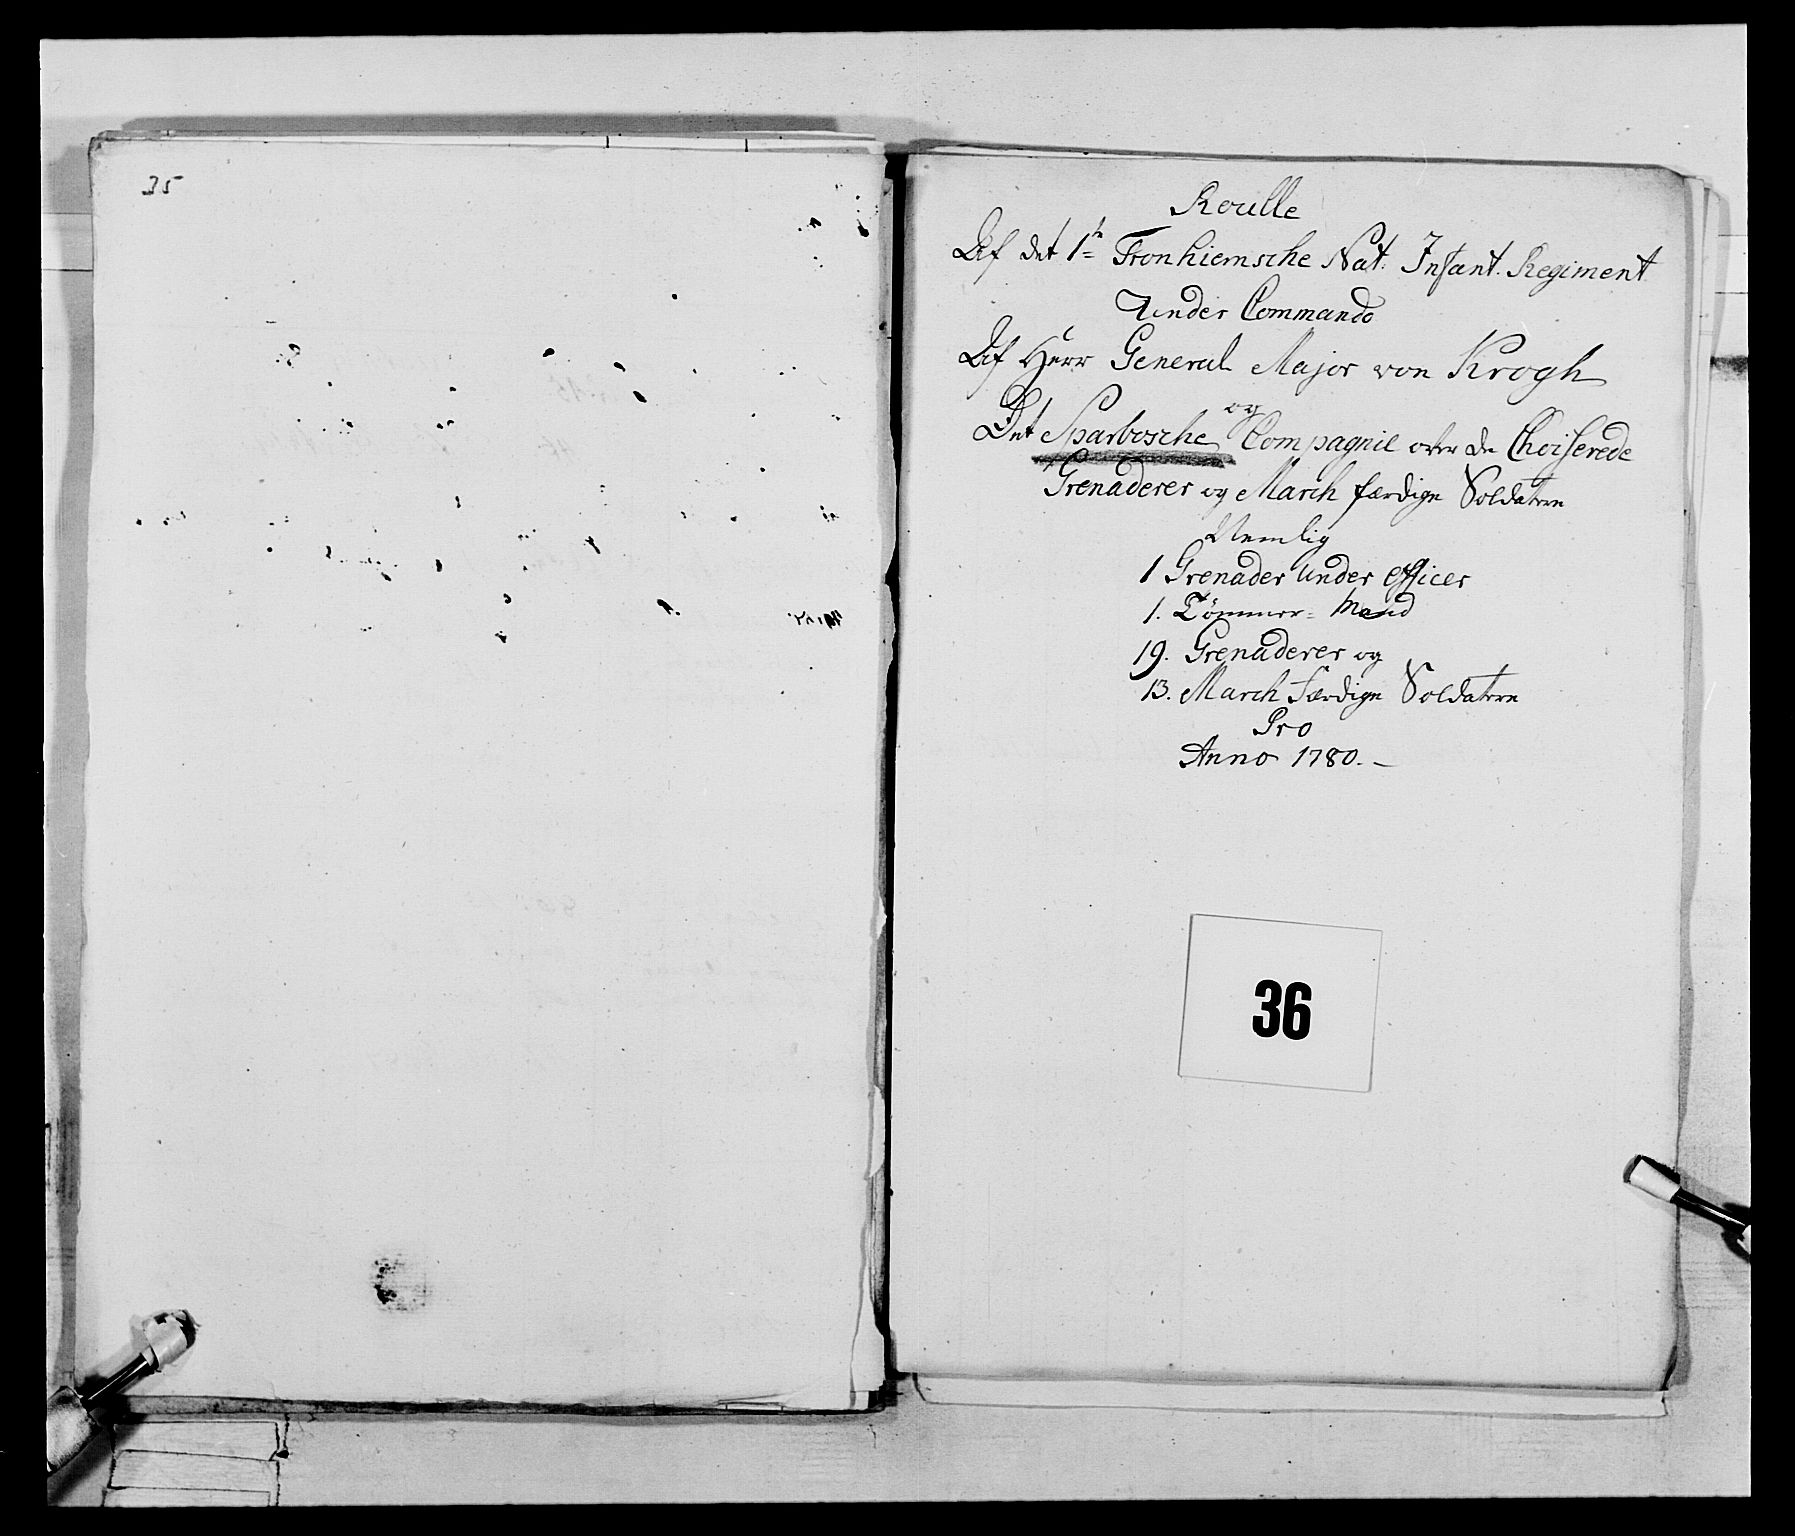 35
Roulle
Af det 1te Tronhiemsche Nat. Infant. Regiment
Under Commando
Af Herr General Major von Krogh
og
Det Sparbosche Compagnie over de Choiserede
Grenaderer og March færdige Soldatere
Nemlig
1 Grenader under officer
1. Tömmer= Mand
19. Grenaderer og
13. March færdige Soldatere
Pro
Anno 1780. –
36